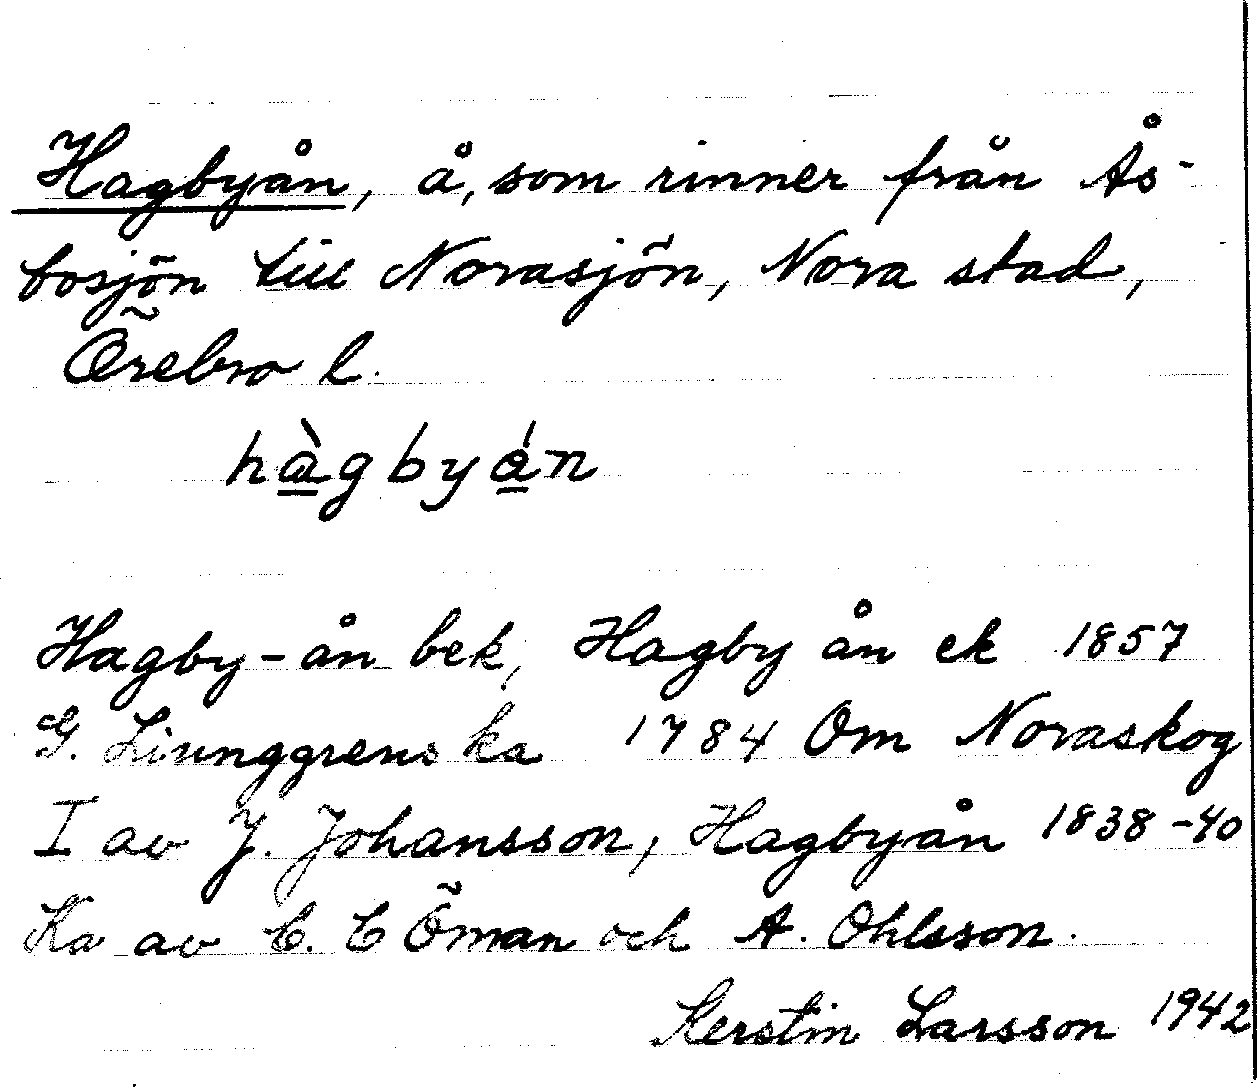 Hagbyån, å, som rinner från Ås-
bosjön till Norasjön, Nora stad,
Örebro l.
hàgbyån
Hagby-ån bek, Hagby ån ek 1857
G. Liunggrens ka 1784 Om Noraskog
I av J. Johansson, Hagbyån 1838-40
Ka av C. C Öman och A. Ohlsson.
Kerstin Larsson 1942